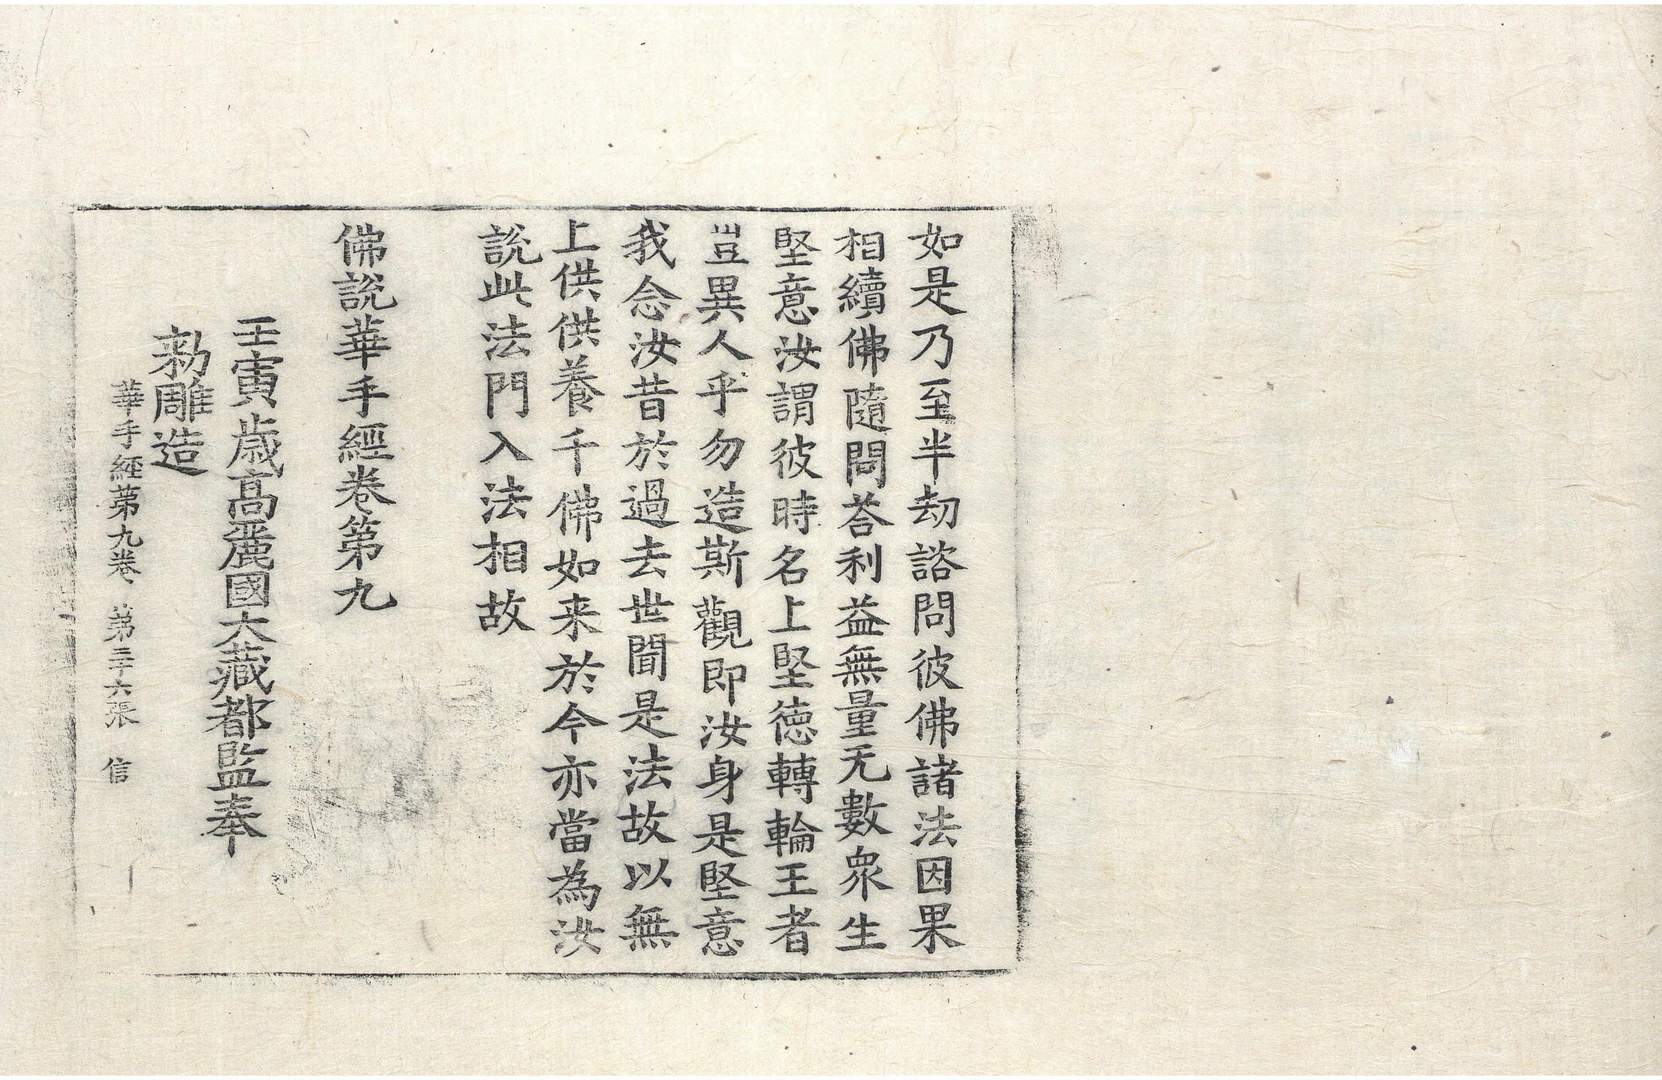 如是乃至半劫諮問彼佛諸法因果
相續佛隨問荅利益無量无數衆生
堅意汝謂彼時名上堅徳轉輪王者
豈異人乎勿造斯觀即汝身是堅意
我念汝昔於過去世聞是法故以無
上供供養千佛如来於今亦當為汝
說此法門入法相故
佛說華手經卷第九
壬寅歲高麗國大藏都監奉
勑雕造
華手經第九卷 第三十六張 信